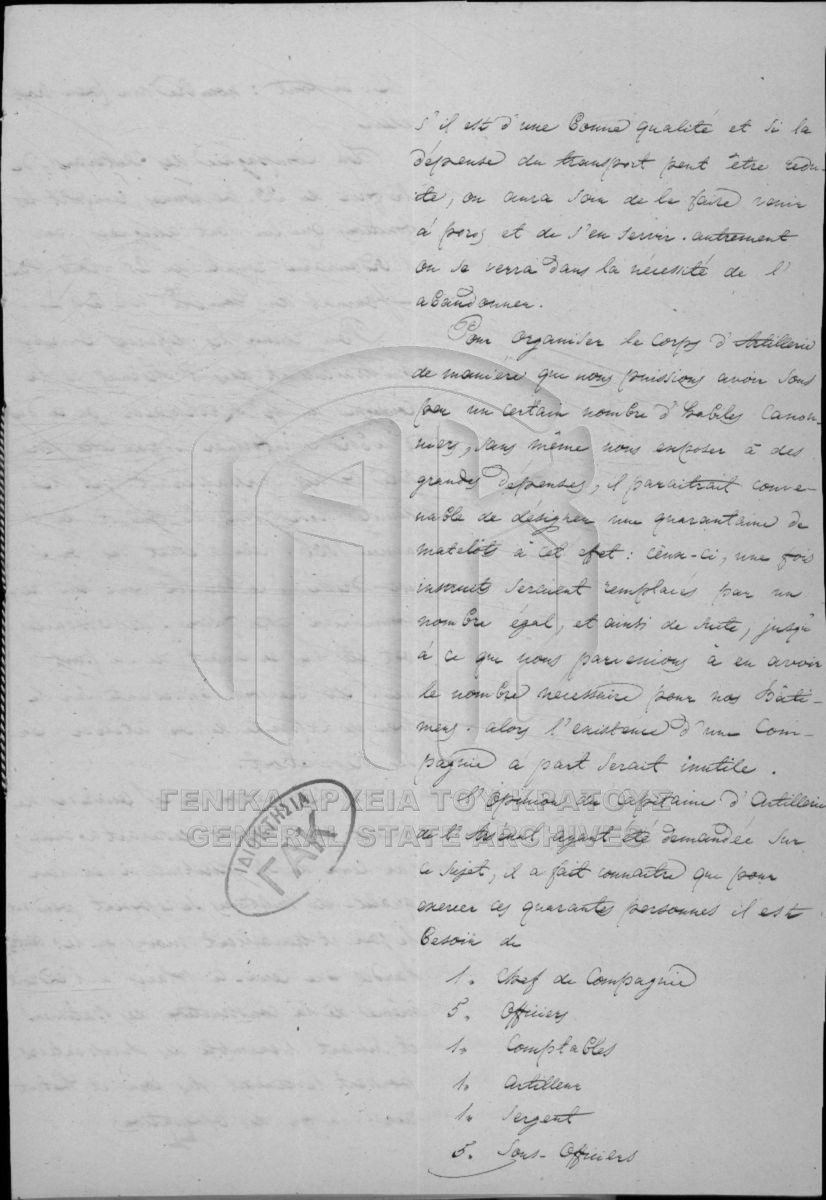 s'il est d'une bonne qualité et si la
dépense du transport peut être rédui-
te, on aura soin de le faire venir
à poros et de s'en servir. autrement
on se verra dans la nécessité de l'
abandonner.
Pour organiser le corps d'Artillerie
de manière que nous puissions avoir sous
peu un certain nombre d'habiles Canon-
niers, sans même nous exposer à des
grandes dépenses, il paraitrait conve-
nable de désigner une quarantaine de
matelots à cet effet: ceux-ci, une fois
instruits seraient remplacés par un
nombre égal, et ainsi de suite, jusqu'
à ce que nous parvenions à en avoir
le nombre necessaire pour nos Bâti-
mens. alors l'existence d'une Com-
pagnie a part serait inutile.
L'opinion du Capitaine d'Artillerie
de l'Arsenal ayant été demandée sur
ce sujet, il a fait connaitre que pour
exercer ces quarantes personnes il est
besoin de
1. Chef de Compagnie
5. Officiers
1. Comptables
1. Artilleur
1. Sergent
5. Sous-Officiers
ΓΕΝΙΚΑ ΑΡΧΕΙΑ ΤΟΥ ΚΡΑΤΟΥΣ
GENERAL STATE ARCHIVES
ΙΔΙΟΚΤΗΣΙΑ
ΓΑΚ